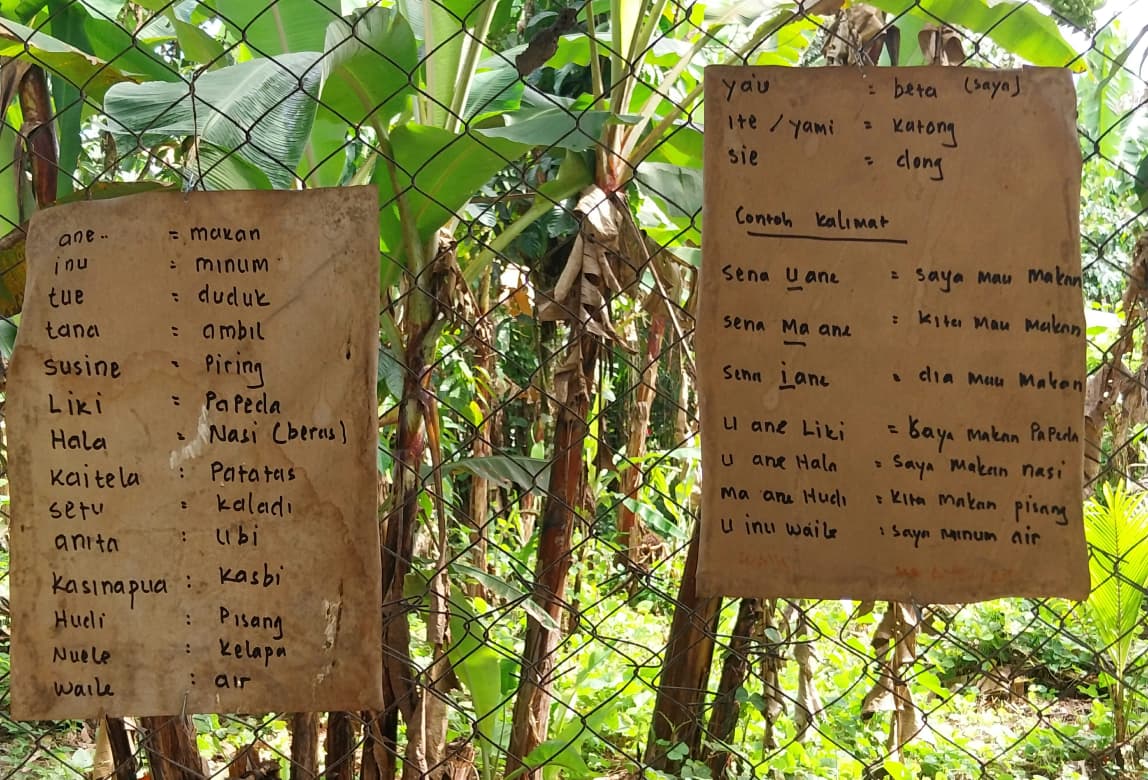 ane.. = makan
inu = minum
tue = duduk
tana = ambil
susine = Piring
Liki = Papeda
Hala = Nasi (beras)
Kaitela : Patatas
setu : kaladi
anita : Ubi
Kasinapua : Kasbi
Hudi : Pisang
Nuele : Kelapa
Waile : air
yau = beta (saya)
ite / yami = katong
sie = dong
Contoh kalimat
sena u ane = saya mau makan
sena ma ane = kita mau makan
sena i ane = dia mau makan
U ane Liki = Saya makan Papeda
U ane Hala = Saya makan nasi
Ma ane Hudi = Kita makan pisang
U inu waile : saya minum air